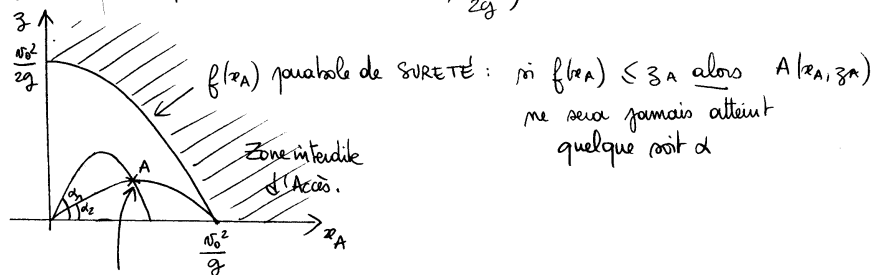 2g
z
v₀²
2g
f(xA) parabole de SURETÉ : si f(xA) ≤ zA alors A(xA, zA)
ne sera jamais atteint
quelque soit α
Zone interdite
d'Accès.
A
α1
α2
v₀²
g
xA